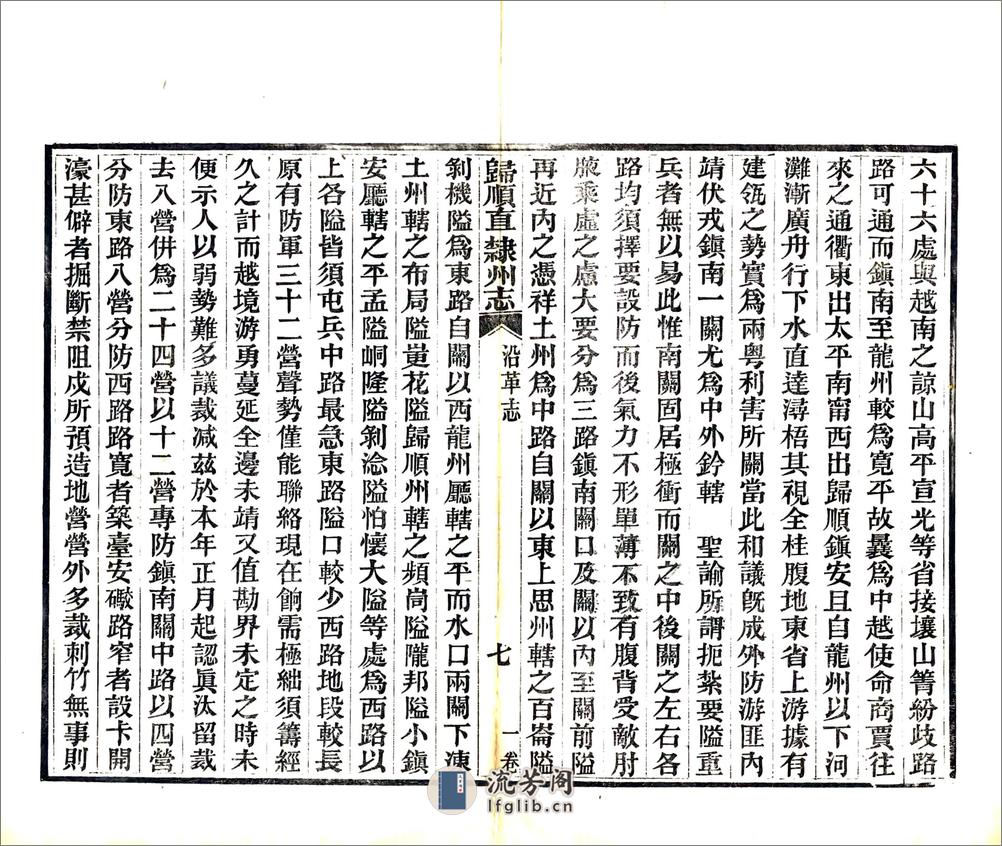 六十六處與越南之諒山高平宣光等省接壤山箐紛歧路
路可通而鎭南至龍州較爲寬平故曩爲中越使命商賈往
來之通衢東出太平南甯西出歸順鎭安且自龍州以下河
灘漸廣舟行下水直達潯梧其視全桂腹地東省上游據有
建瓴之勢實爲兩粤利害所關當此和議旣成外防游匪內
靖伏戎鎭南一關尤爲中外鈐轄　聖諭所謂扼紮要隘重
兵者無以易此惟南關固居極衝而關之中後關之左右各
路均須擇要設防而後氣力不形單薄不致有腹背受敵肘
腋乘虛之慮大要分爲三路鎭南關口及關以內至關前隘
再近內之憑祥土州爲中路自關以東上思州轄之百崙隘
歸順直隸州志 沿革志 七 一卷
剝機隘爲東路自關以西龍州廳轄之平而水口兩關下凍
土州轄之布局隘葷花隘歸順州轄之頻峝隘隴邦隘小鎭
安廳轄之平孟隘峒隆隘剝淰隘怕懷大隘等處爲西路以
上各隘皆須屯兵中路最急東路隘口較少西路地段較長
原有防軍三十二營聲勢僅能聯絡現在餉需極絀須籌經
久之計而越境游勇蔓延全邊未靖又值勘界未定之時未
便示人以弱勢難多議裁减茲於本年正月起認眞汰留裁
去八營併爲二十四營以十二營專防鎭南關中路以四營
分防東路八營分防西路路寬者築臺安礮路窄者設卡開
濠甚僻者掘斷禁阻戍所預造地營營外多栽刺竹無事則
流芳阁
lfglib.cn